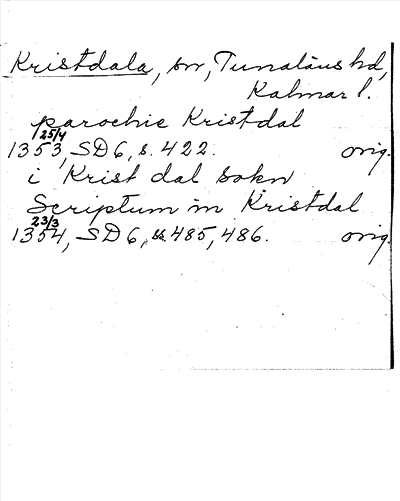 Kristdala, sn, Tunaläns hd,
Kalmar l.
parochie Kristdal
25/4
1353, SD 6, s. 422. orig.
i Krist dal sokn
Scriptum in Kristdal
23/3
1354, SD 6, ss 485, 486. orig.